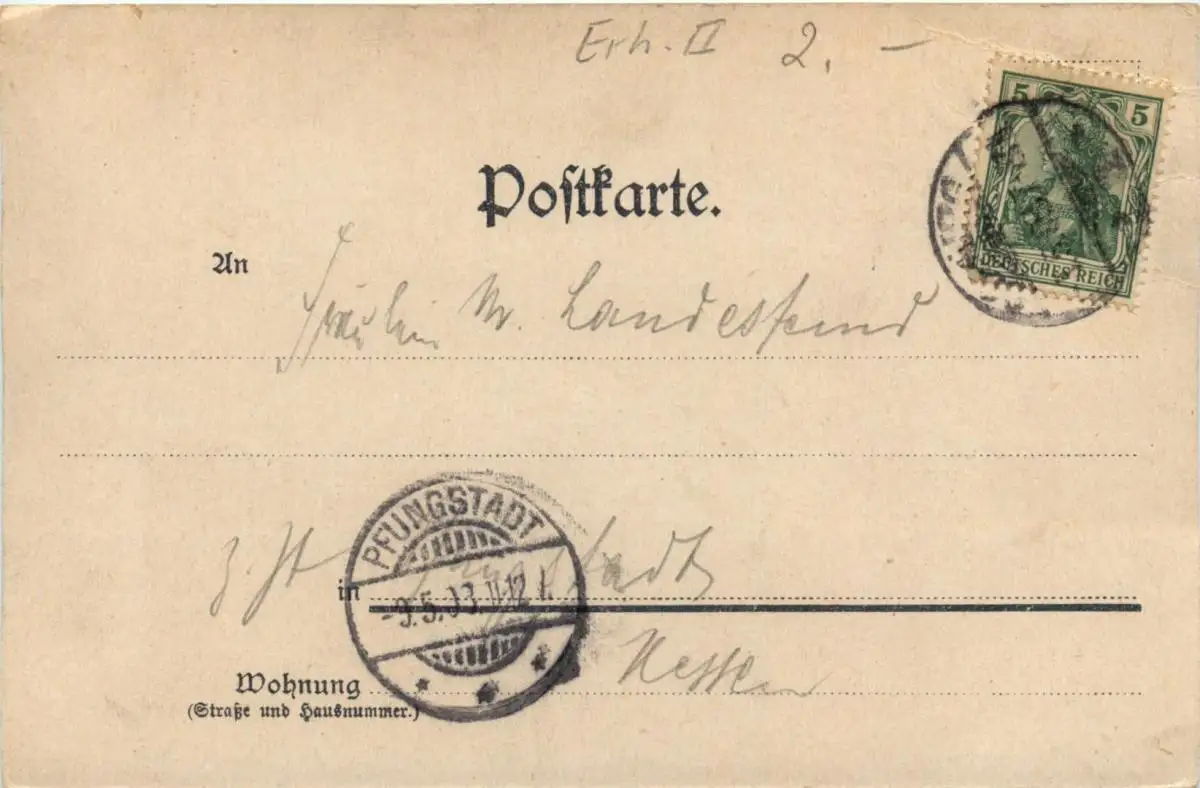 Erh. II 2. –
5 5
DEUTSCHES REICH
Postkarte.
An
Fräulein M. Landesfeind
PFUNGSTADT
-9.5.03. 11-12
z. Zt.
in Pfungstadt
Hessen
Wohnung
(Straße und Hausnummer.)